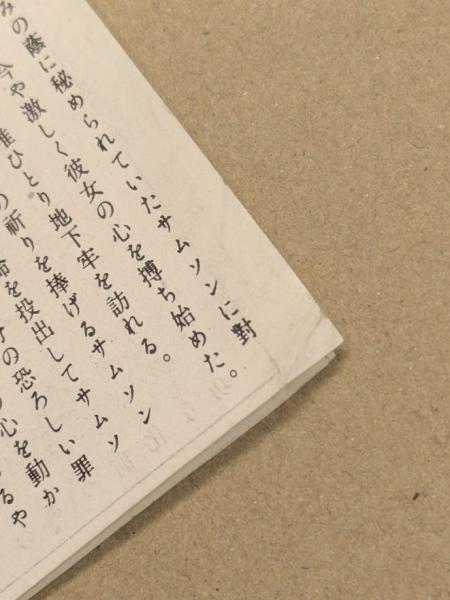 みの蔭に秘められていたサムソンに對
今や激しく彼女の心を搏ち始めた。
唯ひとり地下牢を訪れる。
の祈りを捧げるサムソン
命を投出してサムソ
の恐ろしい罪
の心を動か
るや